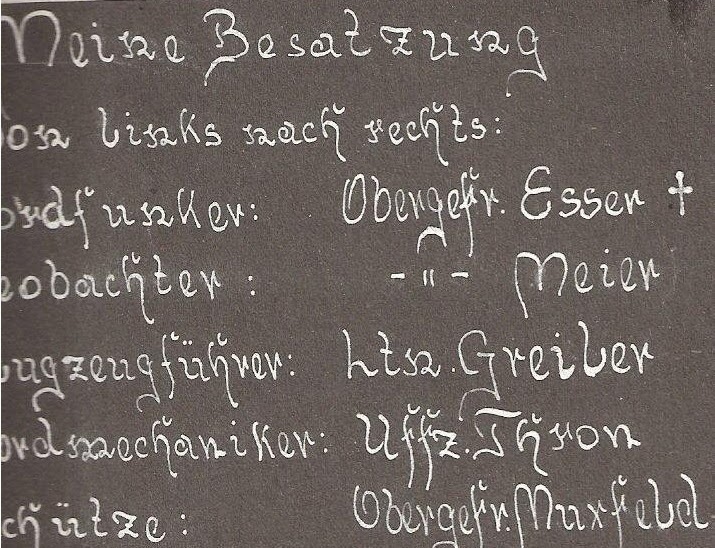 Meine Besatzung
Von links nach rechts:
ordfunker: Obergefr. Esser †
eobachter: -"- Meier
lugzeugführer: Ltn. Greiber
ordmechaniker: Uffz. Thron
chütze: Obergefr. Murfeld.